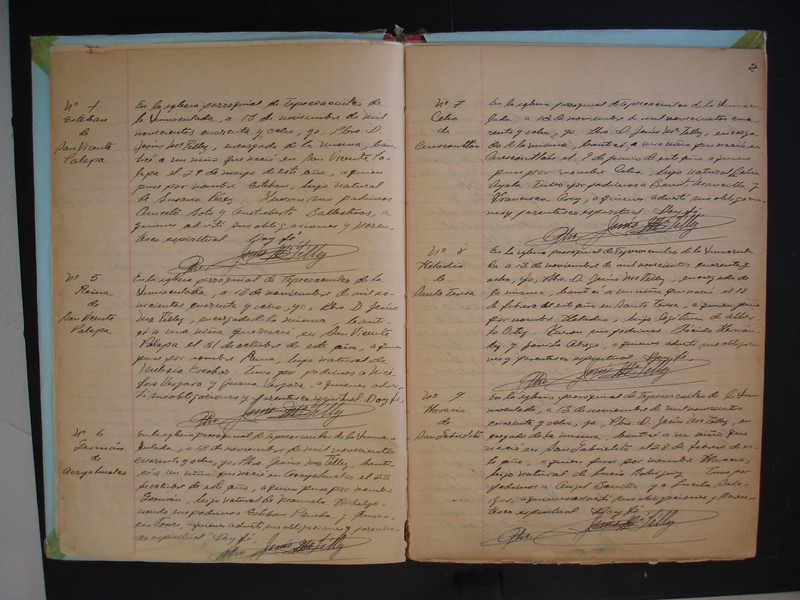 Nº 4
Esteban
de
San Vicente
Palapa
En la iglesia parroquial de Tepecoacuilco de
la Inmaculada, a 13 de noviembre de mil
novecientos cuarenta y ocho, yo, Pbro. D.
Jesús Mª Telly, encargado de la misma, bau-
ticé a un niño que nació en San Vicente Pa-
lapa el 29 de mayo de este año, a quien
puse por nombre Esteban, hijo natural
de Susana Pérez. Fueron sus padrinos
Aniceto Soto y
quienes advertí sus obligaciones y paren-
tesco espiritual. Doy fé.
Pbro. Jesús Mª Telly
Nº 5
Reina
de
San Vicente
Palapa
En la iglesia parroquial de Tepecoacuilco de la
Inmaculada, a 13 de noviembre de mil no-
vecientos cuarenta y ocho, yo, Pbro. D. Jesús
Mª Telly, encargado de la misma, bauti-
cé a una niña que nació en San Vicente
Palapa el 31 de octubre de este año, a quien
puse por nombre Reina, hija natural de
Escobar. Tuvo por padrinos a
Vergara y Juana Vergara, a quienes adver-
tí sus obligaciones y parentesco espiritual. Doy fé.
Pbro. Jesús Mª Telly
Nº 6
Germán
de
En la iglesia parroquial de Tepecoacuilco de la Inma-
culada, a 13 de noviembre de mil novecientos
cuarenta y ocho, yo, Pbro. Jesús Mª Telly, bauti-
cé a un niño que nació en
octubre de este año, a quien puse por nombre
Germán, hijo natural de Manuela Hidalgo
siendo sus padrinos Esteban Pineda y
a quienes advertí sus obligaciones y parentes-
co espiritual. Doy fé.
Pbro. Jesús Mª Telly
2
Nº 7
Celia
de
En la iglesia parroquial de Tepecoacuilco de la Inmacu-
lada, a 13 de noviembre de mil novecientos cua-
renta y ocho, yo, Pbro. D. Jesús Mª Telly, encarga-
do de la misma, bauticé a una niña que nació en
el 9 de junio de este año a quien
puse por nombre Celia, hija natural
Ayala. Tuvo por padrinos a
Francisca a quienes advertí sus obligacio-
nes y parentesco espiritual. Doy fé.
Pbro. Jesús Mª Telly
Nº 8
Heladio
de
Santa Teresa
En la iglesia parroquial de Tepecoacuilco de la Inmacula-
da a 13 de noviembre de mil novecientos cuarenta y
ocho, yo, Pbro. D. Jesús Mª Telly, encargado de
la misma, bauticé a un niño que nació el 18
de febrero de este año en Santa Teresa, a quien puse
por nombre Heladio, hijo legítimo de
Ortiz. Fueron sus padrinos
a quienes advertí sus obligacio-
nes y parentesco espiritual. Doy fé.
Pbro. Jesús Mª Telly
Nº 9
Horacio
de
San Gabrielito
En la iglesia parroquial de Tepecoacuilco de la In-
maculada, a 13 de noviembre de mil novecientos
cuarenta y ocho, yo, Pbro. D. Jesús Mª Telly, en-
cargado de la misma, bauticé a un niño que
nació en San Gabrielito el 28 de febrero de es-
te año, a quien puse por nombre Horacio,
hijo natural de Rodríguez. Tuvo por
padrinos a Angel y a
a quienes advertí sus obligaciones y paren-
tesco espiritual. Doy fé.
Pbro. Jesús Mª Telly